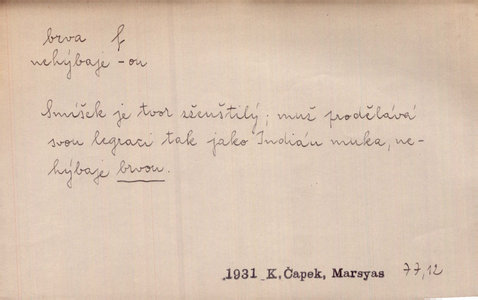 brva f
nehýbaje -ou
Smíšek je tvor sžeuštilý; muž prodělává
svou legraci tak jako Indián muka, ne-
hýbaje brvou.
1931 K. Čapek, Marsyas 77,12